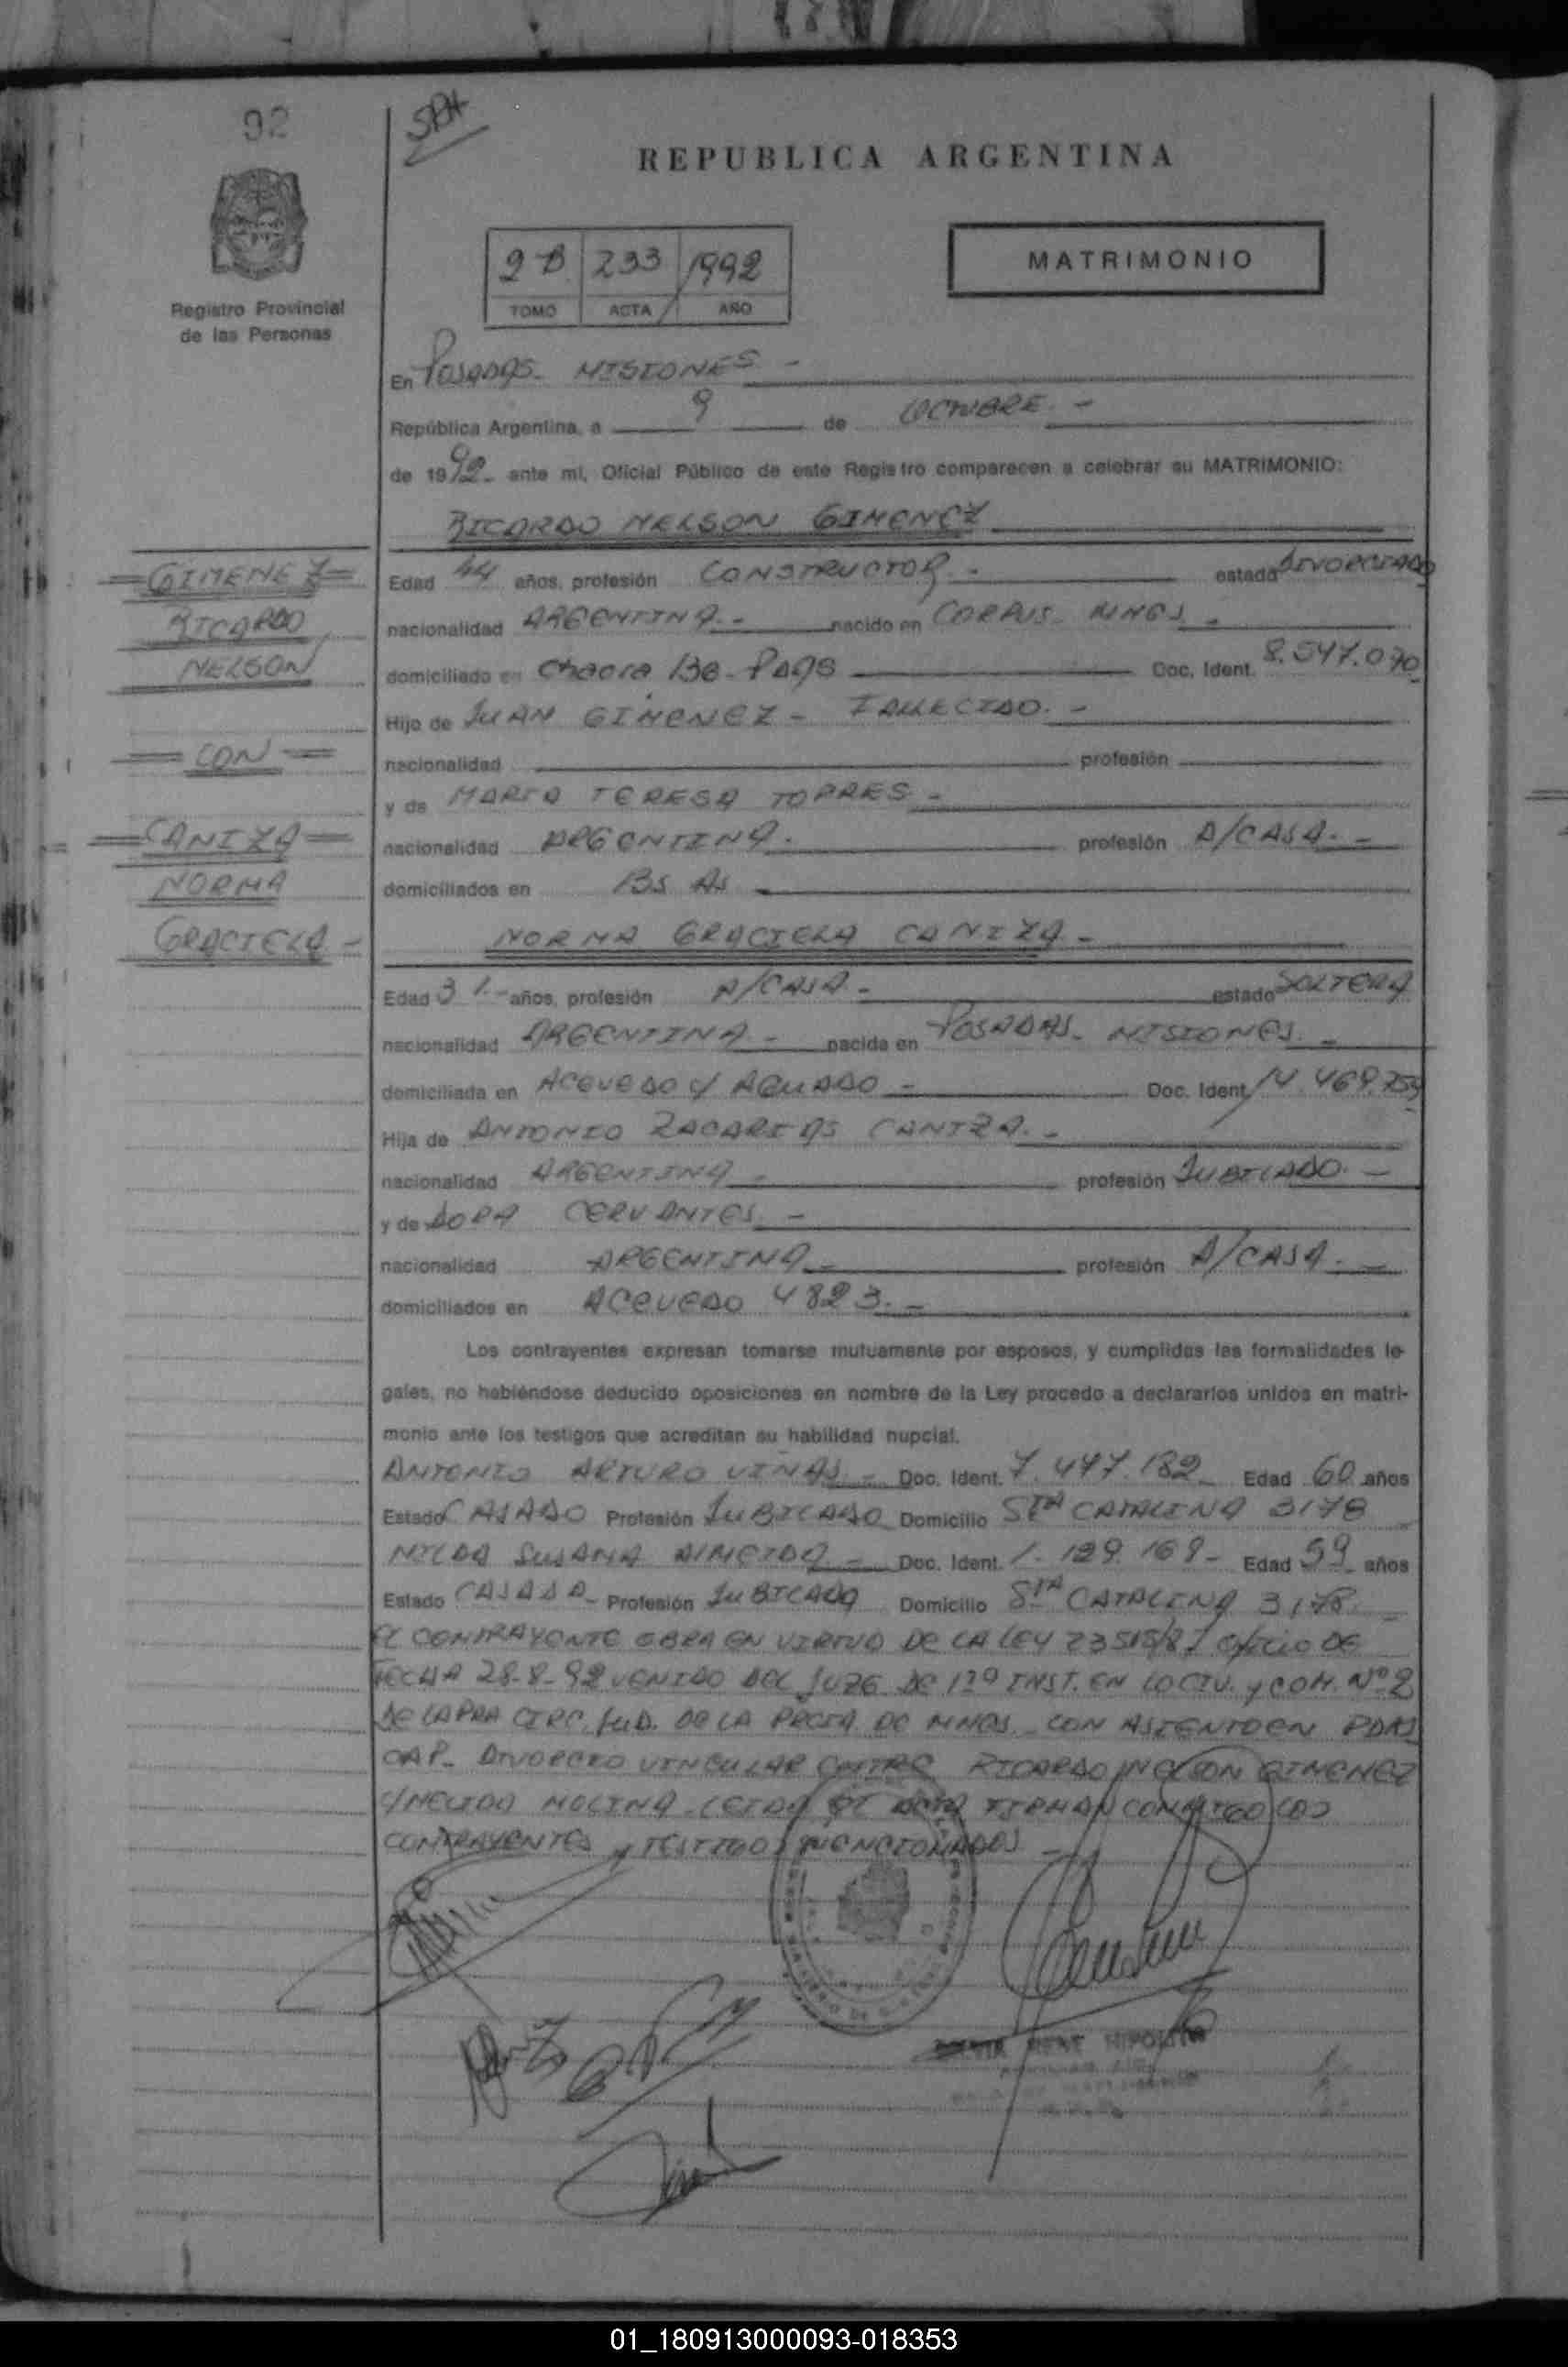 92
SPH
REPUBLICA ARGENTINA
2 B 233 1992
TOMO ACTA AÑO
MATRIMONIO
Registro Provincial
de las Personas
En POSADAS - MISIONES -
República Argentina, a 9 de OCTUBRE. -
de 1992- ante mí, Oficial Público de este Registro comparecen a celebrar su MATRIMONIO:
RICARDO NELSON GIMENEZ
GIMENEZ
RICARDO
NELSON
CON
CANIZA
NORMA
GRACIELA -
Edad 44 años, profesión CONSTRUCTOR. - estado DIVORCIADO
nacionalidad ARGENTINA. - nacido en CORPUS - MNES. -
domiciliado en Chacra 136 - PDAS Doc. Ident. 8.547.070
Hijo de JUAN GIMENEZ - FALLECIDO. -
nacionalidad profesión
y de MARIA TERESA TORRES -
nacionalidad ARGENTINA. profesión A/CASA. -
domiciliados en BS AS
NORMA GRACIELA CANIZA -
Edad 31.- años, profesión A/CASA - estado SOLTERA
nacionalidad ARGENTINA - nacida en POSADAS - MISIONES. -
domiciliada en ACEVEDO Y AGUADO - Doc. Ident. 14.469.753
Hija de ANTONIO ZACARIAS CANIZA. -
nacionalidad ARGENTINA - profesión JUBILADO. -
y de DORA CERVANTES. -
nacionalidad ARGENTINA - profesión A/CASA. -
domiciliados en ACEVEDO 4823. -
Los contrayentes expresan tomarse mutuamente por esposos, y cumplidas las formalidades le-
gales, no habiéndose deducido oposiciones en nombre de la Ley procedo a declararlos unidos en matri-
monio ante los testigos que acreditan su habilidad nupcial.
ANTONIO ARTURO VIÑAS - Doc. Ident. 7.447.182 - Edad 60 años
Estado CASADO Profesión JUBILADO Domicilio STA CATALINA 3178
NILDA SUSANA ALMEIDA - Doc. Ident. 1.129.169 - Edad 59 años
Estado CASADA - Profesión JUBILADA Domicilio STA CATALINA 3178 -
EL CONTRAYENTE OBRA EN VIRTUD DE LA LEY 23515/87 oficio DE
FECHA 28-8-92 VENIDO DEL JUZG DE 1RA INST. EN LO CIV. y COM. Nº 2
DE LA PRA CIRC. JUD. DE LA PRCIA DE MNES - CON ASIENTO EN PDAS
CAP - DIVORCIO VINCULAR ENTRE RICARDO NELSON GIMENEZ
C/NELIDA MOLINA - LEIDA EL ACTA FIRMAN CONMIGO LOS
CONTRAYENTES y TESTIGOS MENCIONADOS -
01_180913000093-018353